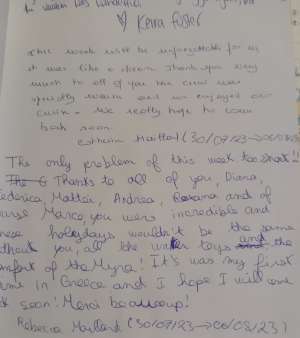 was
♡ Keira Foster
This week will be unforgettable for us
it was like a dream. Thank you very
much to all of you the crew was
specially warm and we enjoyed our
cruise. We really hope to come
back soon
Maillard (30/07/23→06/08/23)
The only problem of this week too short!!
Thanks to all of you, Diana,
ederica, Mattei, Andrea, Roxana and of
ourse Marco, you were incredible and
hese holydays wouldn't be the same
ithout you, all the water toys and the
mfort of the Myra! It's was my first
ime in Greece and I hope I will come
ck soon! Merci beaucoup!
Rebecca Maillard (30/07/23→06/08/23)